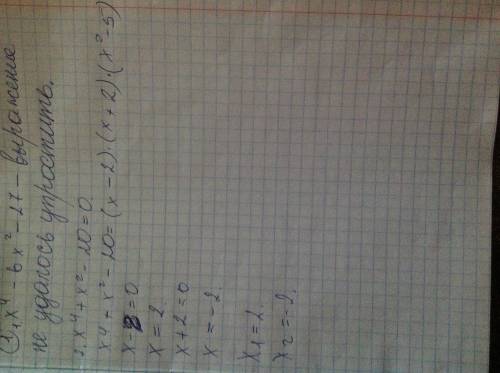 1. x⁴ - 6x² - 27 - выражение
не удалось упростить.
2. x⁴ + x² - 20 = 0
x⁴ + x² - 20 = (x - 2) · (x + 2) · (x² - 5)
x - 2 = 0
x = 2
x + 2 = 0
x = -2
x₁ = 2.
x₂ = -2.